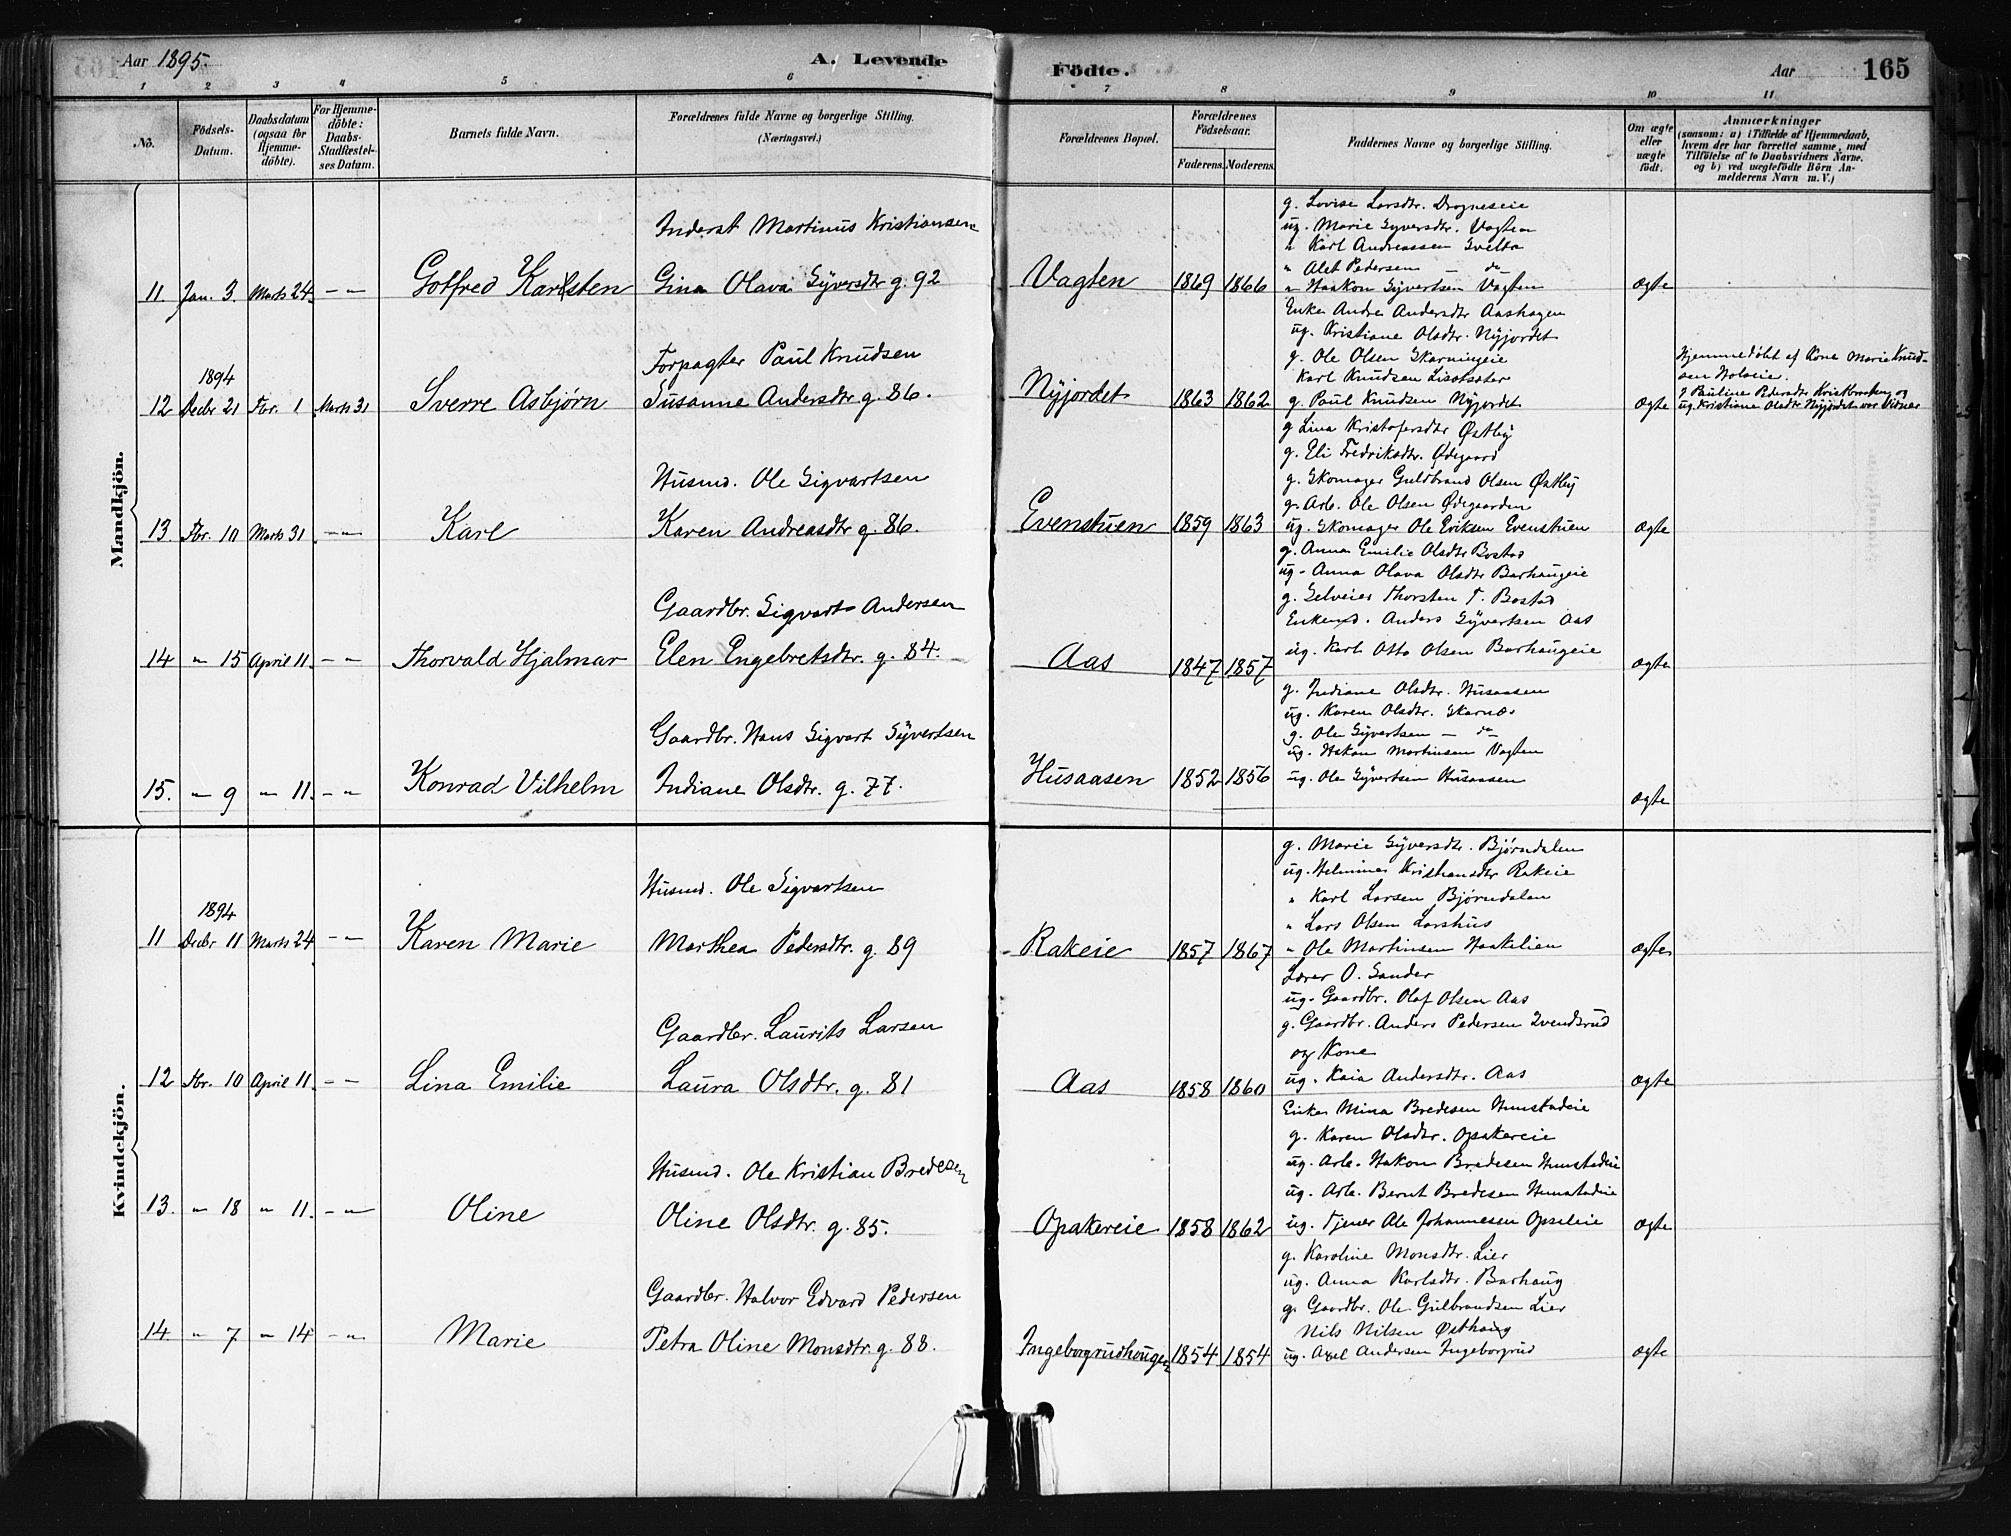 Aar 1895. A. Levende Födte. Aar 165
1 2 3 4 5 6 7 8 9 10 11
No. Födsels-Datum. Daabsdatum (ogsaa for Hjemme-döbte). For Hjemme-döbte: Daabs-Stadfestel-ses Datum. Barnets fulde Navn. Forældrenes fulde Navne og borgerlige Stilling. (Næringsvei.) Forældrenes Bopæl. Forældrenes Födselsaar. Faderens. Moderens. Faddernes Navne og borgerlige Stilling. Om ægte eller uægte födt. Anmærkninger (saasom: a) i Tilfælde af Hjemmedaab, hvem der har forrettet samme, med Tilföielse af to Daabsvidners Navne, og b) ved uægtefödte Börn An-melderens Navn m. V.)
Mandkjön.
11 Jan. 3 Marts 24. - - Gotfred Karlsten
Inderst Martinus Kristiansen
Gina Olava Syversdtr g. 92
Vagten 1869 1866
g. Lovise Larsdtr. Drogneseie
ug. Marie Syversdtr. Vagten
" Karl Andreassen
" Alet Pedersen - do
" Haakon Syvertsen Vagten
ægte
12 1894 Decbr 21 Fbr. 1 Marts 31 Sverre Asbjørn
Forpagter Paul Knudsen
Susanne Andersdtr g. 86.
Nyjordet 1863 1862
Enke Andre Andersdtr Aashagen
ug. Kristiane Olsdtr. Nyjordet
g. Ole Olsen Skarningeie
Karl Knudsen
g. Paul Knudsen Nyjordet
ægte
Hjemmedöbt af Kone Marie Knud-
sen Holseie.
g Pauline Pedersdtr og
ug. Kristiane Olsdtr Nyjordet var Vidner
13. Fbr. 10 Marts 31 - - Karl
Husmd. Ole Sigvartsen
Karen Andreasdtr g. 86.
Evenstuen 1859 1863
g Lina Kristofersdtr Østby
g. Eli Fredriksdtr. Ødegaard
g. Skomager Guldbrand Olsen Østby
g. Arb. Ole Olsen Ødegaarden
ug. Skomager Ole Eriksen Evenstuen
ægte
14 " 15 April 11. - - Thorvald Hjalmar
Gaardbr. Sigvart Andersen
Elen Engebretsdtr. g. 84.
Aas 1847 1857
g. Anna Emilie Olsdtr Bostad
ug. Anna Olava Olsdtr Barhaugeie
g. Selveier Thorsten T. Bostad
Enkemd. Anders Syvertsen Aas
ug. Karl Otto Olsen Barhaugeie
ægte
15. " 9 " 11. - - Konrad Vilhelm
Gaardbr. Hans Sigvart Syvertsen
Indiane Olsdtr. g. 77.
Husaasen 1852 1856
g. Indiane Olsdtr. Husaasen
ug. Karen Olsdtr. Skarnæs
g. Ole Syvertsen - do
ug. Hakon Martinsen Vagten
ug. Ole Syvertsen Husaasen
ægte
Kvindekjön.
11 1894 Decbr 11 Marts 24 - - Karen Marie
Husmd. Ole Sigvartsen
Marthea Pedersdtr. g. 89
Rakeie 1857 1867
g. Marie Syversdtr. Bjørndalen
ug. Helmine Kristiansdtr Rakeie
" Karl Larsen Bjørndalen
" Lars Olsen Larshus
" Ole Martinsen Haakelien
ægte
12 Fbr. 10 April 11. - - Lina Emilie
Gaardbr. Laurits Larsen
Laura Olsdtr. g. 81
Aas 1858 1860
Lærer O. Sander
ug. Gaardbr. Olaf Olsen Aas
g. Gaardbr. Anders Pedersen
og Kone
ug. Kaia Andersdtr. Aas
ægte
13. " 18 " 11. - - Oline
Husmd. Ole Kristian Bredesen
Oline Olsdtr. g. 85.
Opakereie 1858 1862
Enke Mina Bredesen Hunstadeie
g. Karen Olsdtr. Opakereie
ug. Arb. Hakon Bredesen Hunstadeie
ug. Arb. Bernt Bredesen Hunstadeie
ug. Tjener Ole Johannesen
ægte
14. " 7 " 14 - - Marie
Gaardbr. Halvor Edvard Pedersen
Petra Oline Monsdtr. g. 88.
Ingeborgrudhougen 1854 1854
g. Karoline Monsdtr. Lier
ug. Anna Karlsdtr. Barhaug
g. Gaardbr. Ole Gulbrandsen Lier
Nils Nilsen Østhaug
ug. Axel Andersen Ingeborgrud
ægte